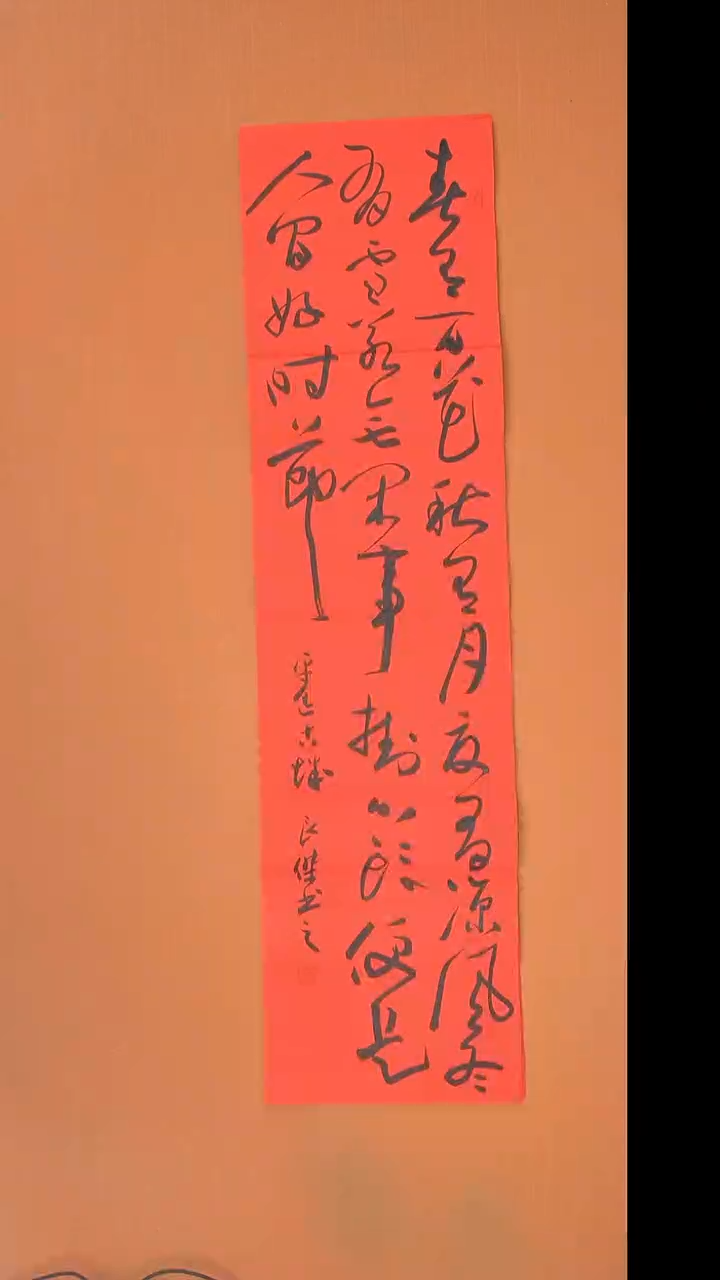 春有百花秋有月夏有凉风冬
有雪若无闲事挂心头便是
人间好时节
良杰书之